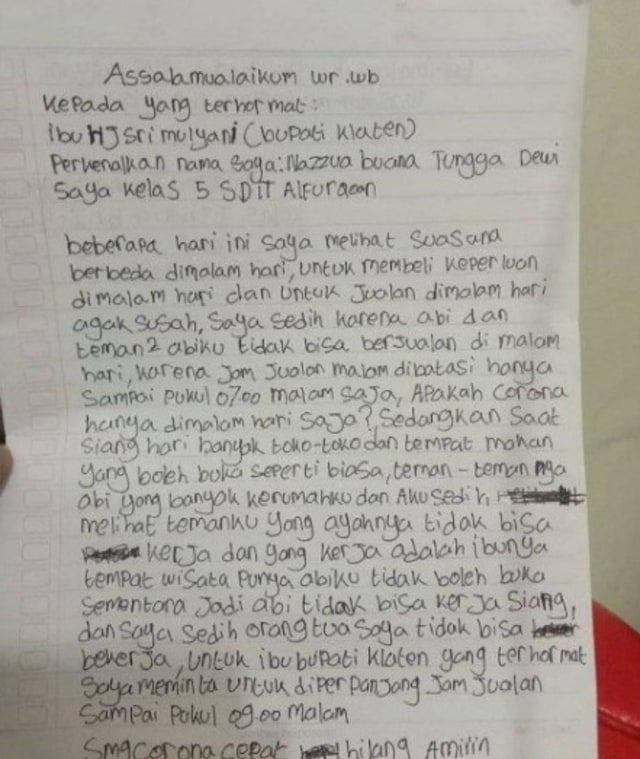 Assalamualaikum wr.wb
Kepada yang terhormat:
ibu HJ sri mulyani (bupati klaten)
Perkenalkan nama saya: Nazzua buana Tungga Dewi
Saya kelas 5 SDIT Alfurqon
beberapa hari ini saya melihat suasana
berbeda dimalam hari, untuk membeli keperluan
dimalam hari dan untuk Jualan dimalam hari
agak susah, saya sedih karena abi dan
teman2 abiku tidak bisa berjualan di malam
hari, karena jam jualan malam dibatasi hanya
sampai pukul 07.00 malam saja, Apakah corona
hanya dimalam hari saja?, Sedangkan Saat
siang hari banyak toko-toko dan tempat makan
yang boleh buka seperti biasa, teman-teman nga
abi yang banyak kerumahku dan Aku sedih,
melihat temanku yang ayahnya tidak bisa
kerja dan yang kerja adalah ibunya
tempat wisata punya abiku tidak boleh buka
sementara Jadi abi tidak bisa kerja siang,
dan saya sedih orang tua saya tidak bisa
bekerja, untuk ibu bupati klaten yang terhormat
saya meminta untuk diperpanjang Jam Jualan
sampai pukul 09.00 malam
Smg corona cepat hilang Amiiin